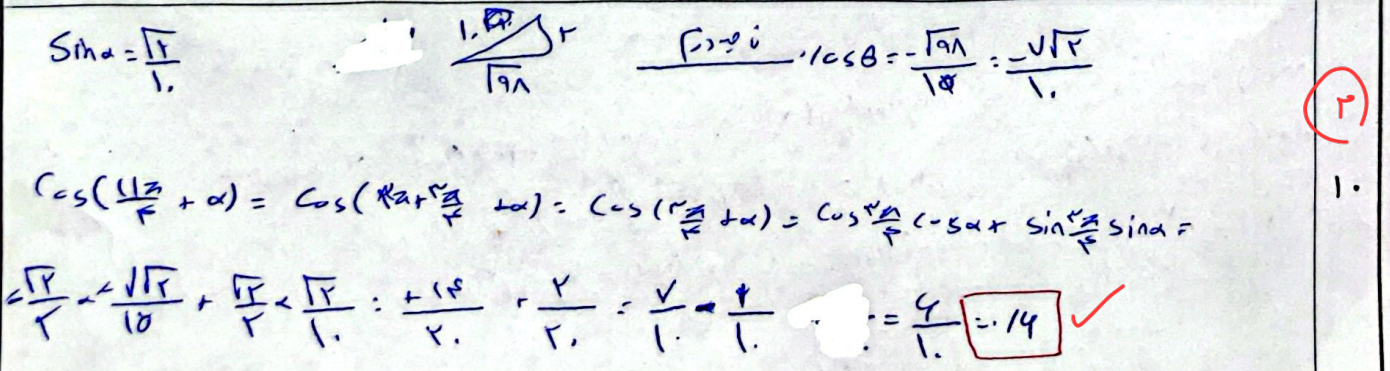 Sinα = √۲/۱۰ ۱۰ ۲ √۹۸ cosθ = -√۹۸/۱۰ = -۷√۲/۱۰
۲
Cos(۱۱π/۴ + α) = Cos(۲π+۳π/۴ +α) = Cos(۳π/۴ +α) = Cos۳π/۴ Cosα + sin۳π/۴ sinα =
۱۰
-√۲/۲ × -۷√۲/۱۰ + √۲/۲ × √۲/۱۰ = +۱۴/۲۰ + ۲/۲۰ = ۷/۱۰ - ۱/۱۰ = ۶/۱۰ = ۰/۶ ✓